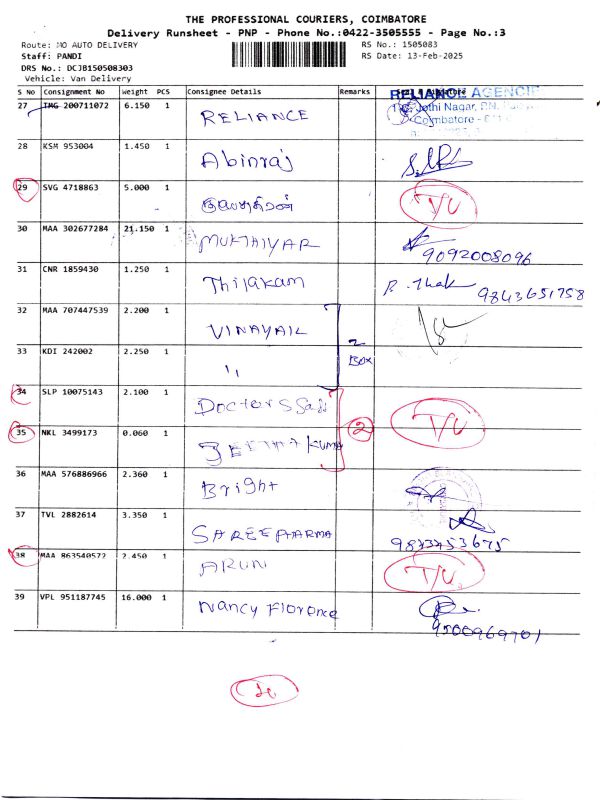 THE PROFESSIONAL COURIERS, COIMBATORE
Delivery Runsheet - PNP - Phone No.:0422-3505555 - Page No.:3
Route: MO AUTO DELIVERY RS No.: 1505083
Staff: PANDI RS Date: 13-Feb-2025
DRS No.: DCJB150508303
Vehicle: Van Delivery
S No Consignment No Weight PCS Consignee Details Remarks
RELIANCE AGENCIE
27 TMG 200711072 6.150 1 RELIANCE
Jothi Nagar, P.N.
Coimbatore - 641
28 KSM 953004 1.450 1 Abinraj
29 SVG 4718863 5.000 1 T/U
30 MAA 302677284 21.150 1 MUKTHIYAR 9092008096
31 CNR 1859430 1.250 1 Thilakam 9843651758
32 MAA 707447539 2.200 1 VINAYAIL
33 KDI 242002 2.250 1 " 2 Box
34 SLP 10075143 2.100 1 Doctors T/U
35 NKL 3499173 0.060 1 KUMA 2
36 MAA 576886966 2.360 1 Bright
37 TVL 2882614 3.350 1 SAREEPHARMA
38 MAA 863540572 2.450 1 ARUN T/U
39 VPL 951187745 16.000 1 Nancy Florence
9500969701